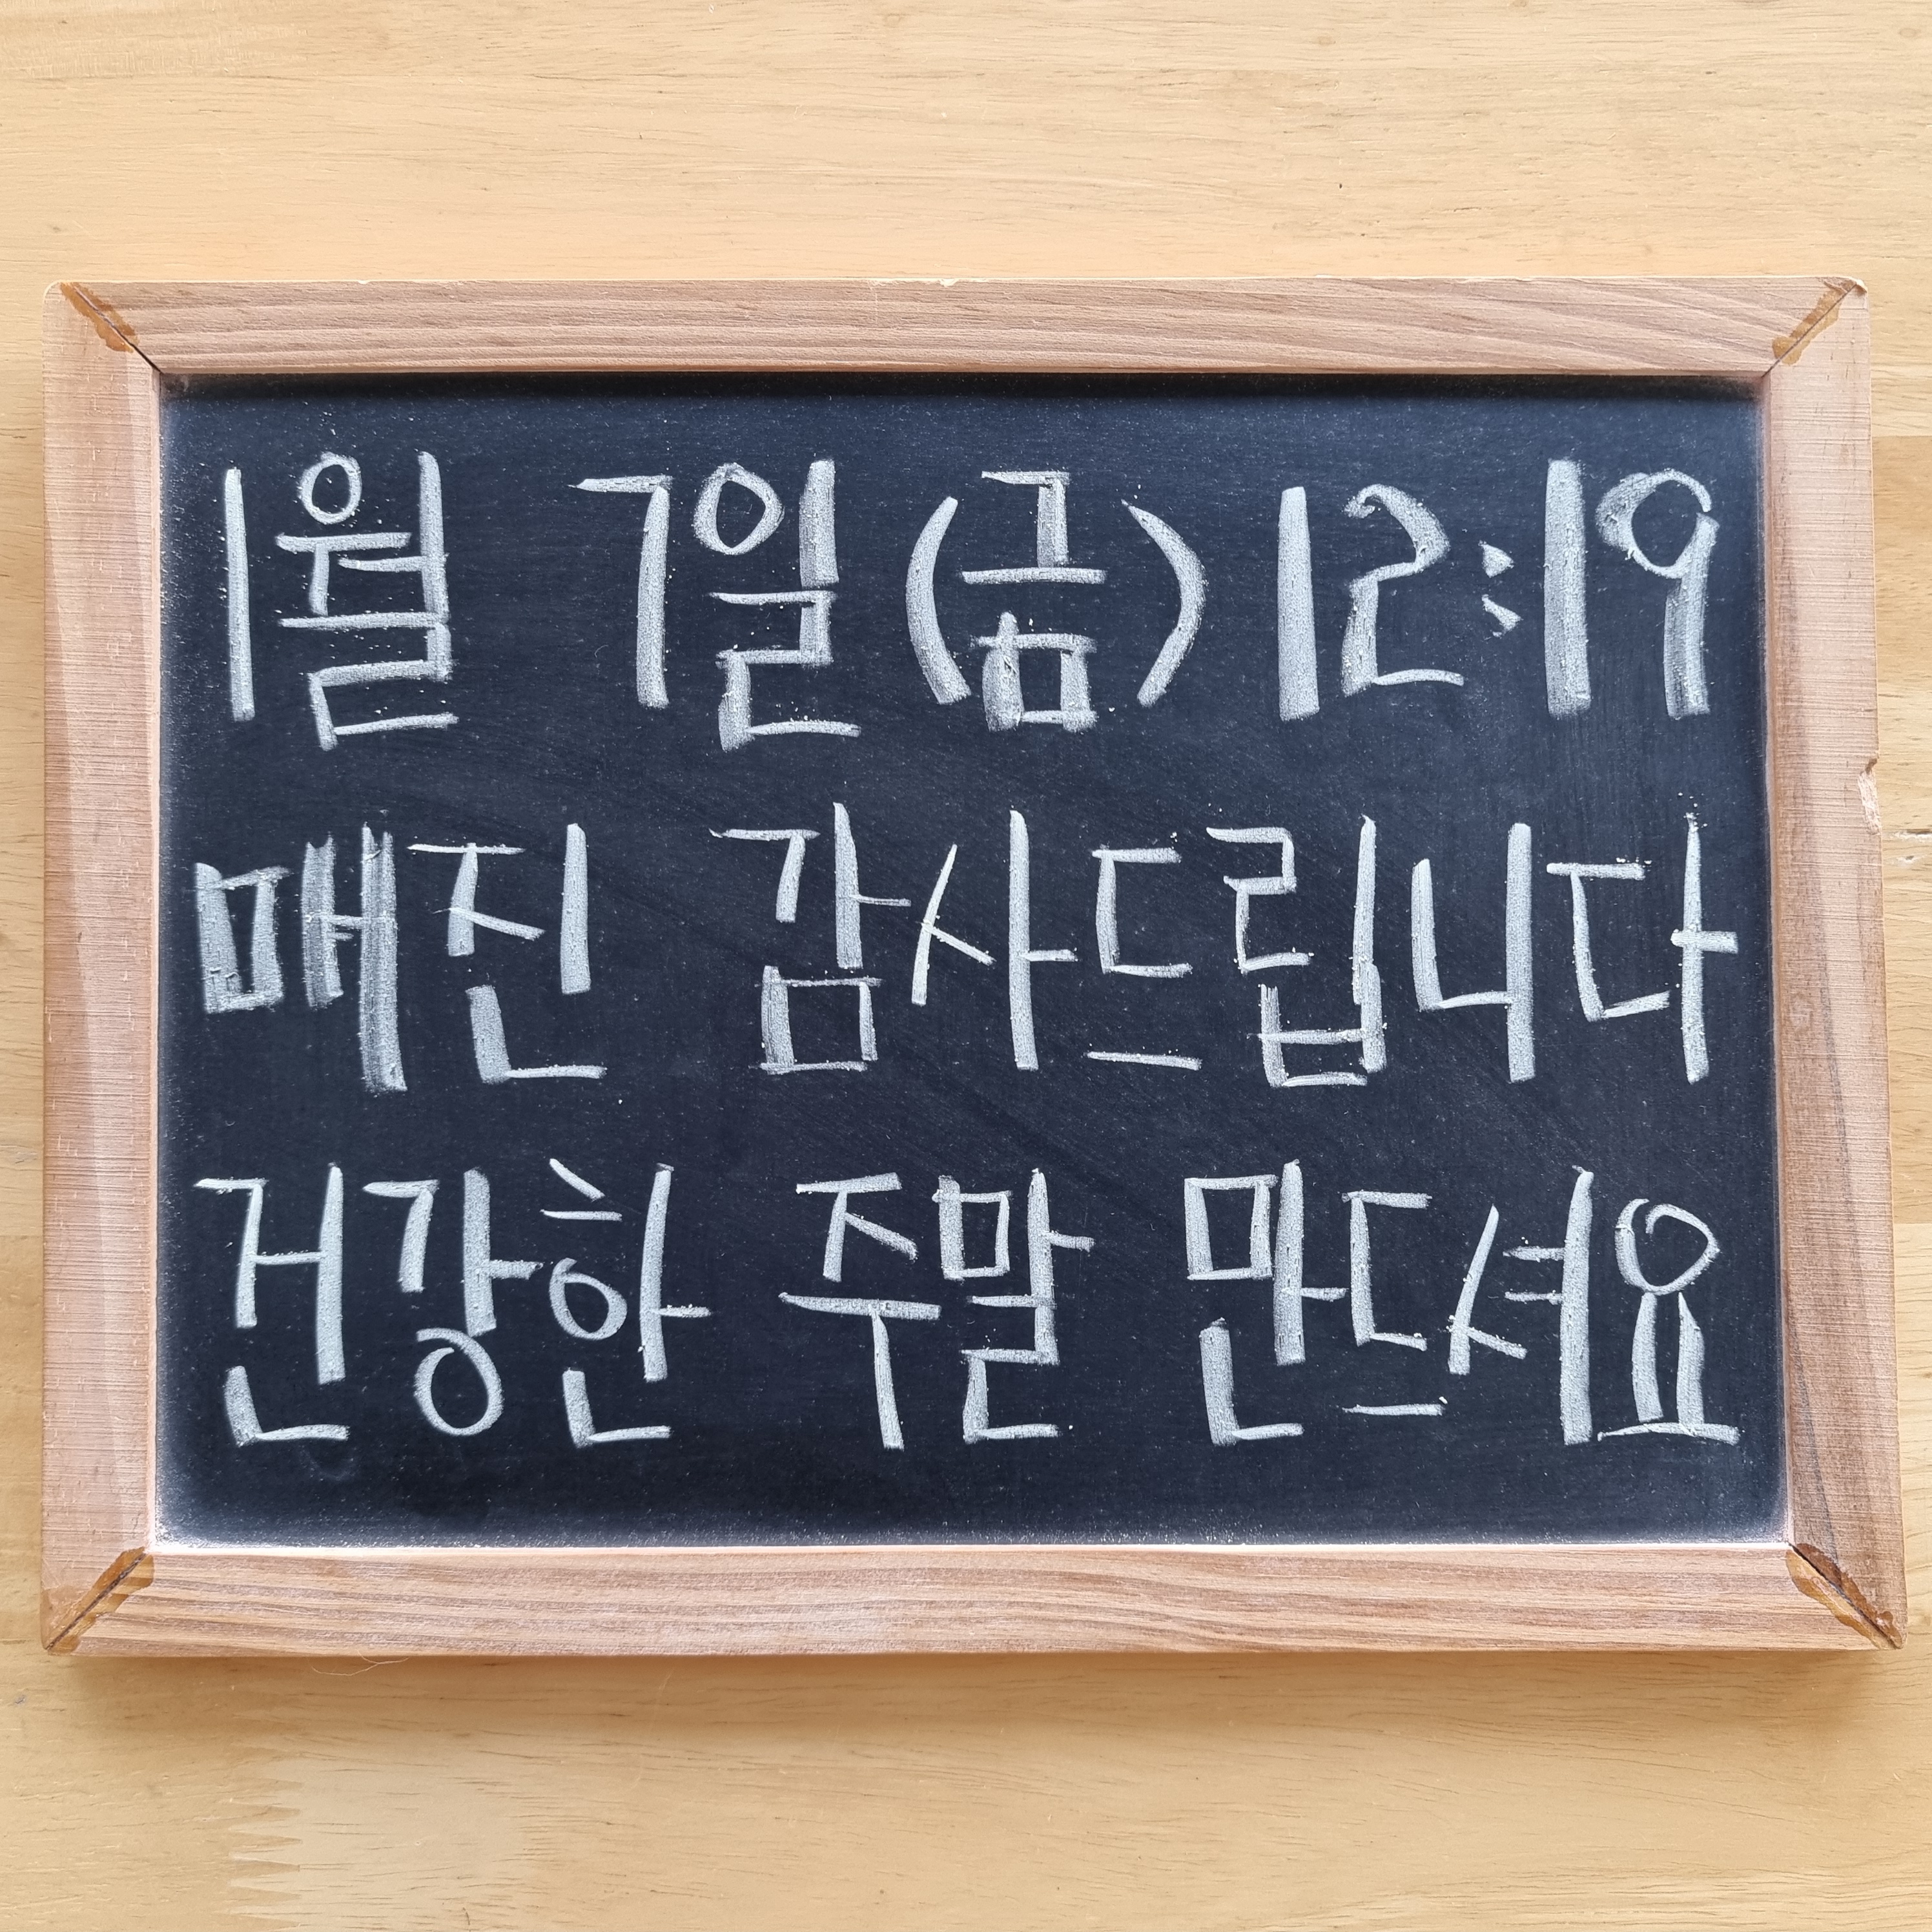 1월 7일(금) 12:19
매진 감사드립니다
건강한 주말 만드셔요